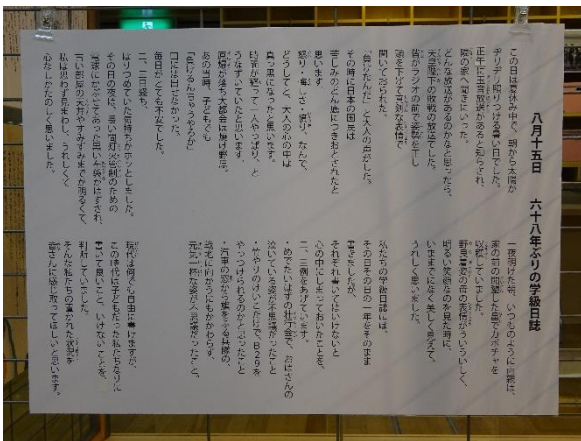 八月十五日　六十八年ぶりの学級日誌
この日は夏休み中で、朝から太陽が
ヂリヂリ照りつける暑い日でした。
正午に玉音放送があると知らされ、
隣の家へ聞きにいった。
どんな放送があるのかなと思ったら、
天皇陛下の敗戦の放送でした。
皆がラジオの前で姿勢を正し
頭を下げて真剣な表情で
聞いておられた。
「負けたんだ」と大人の声がした。
その時に日本の国民は
苦しみのどん底につきおとされたと
思います。
怒り・悔しさ・憤り・なんで、
どうしてと、大人の心の中は
真っ黒になったと思います。
時間が経って一人やっぱり、と
うなずいていたなと思います。
原爆が落ち大都会は焼け野原。
あの当時、子どもでも
「負けるんちゃうやろか」
口には出せなかった。
毎日がとても不安でした。
二、三日経ち、
はりつめていた気持ちがホッとしました。
その日の夜は、長い間灯火管制のための
電球にかぶせてあった黒い布袋がはずされ、
古い部屋の天井やすみずみまでが明るくて、
私は思わず見まわし、うれしくて
心なしかたのしく思いました。
一夜明けた朝、いつものように両親は、
家の前の開墾した畠でカボチャを
収穫していました。
野良着姿の母の表情がういういしく、
明るい笑顔なのを見た時に、
いままでになく美しく思えて、
うれしく思いました。
私たちの学級日誌には、
その日その日の一年をそのまま
書きましたが、
それぞれ書いてはいけないと
心の中にしまっておいたことを、
二、三例をあげています。
・めでたいはずの壮行会で、おばさんの
泣いている姿が不思議だったこと
・竹やりのけいこだけで、B29を
やっつけられるのかとおもったこと
・汽車の窓から旗をふる兵隊の、
戦地に向かうにもかかわらず、
元気一杯な姿が不思議だったこと、
現代は何でも自由に書けますが、
この時代は子どもだった私たちなりに
書いて良いこと、いけないことを、
判断していました。
そんな私たちの置かれた状況を
皆さんに感じ取ってほしいと思います。